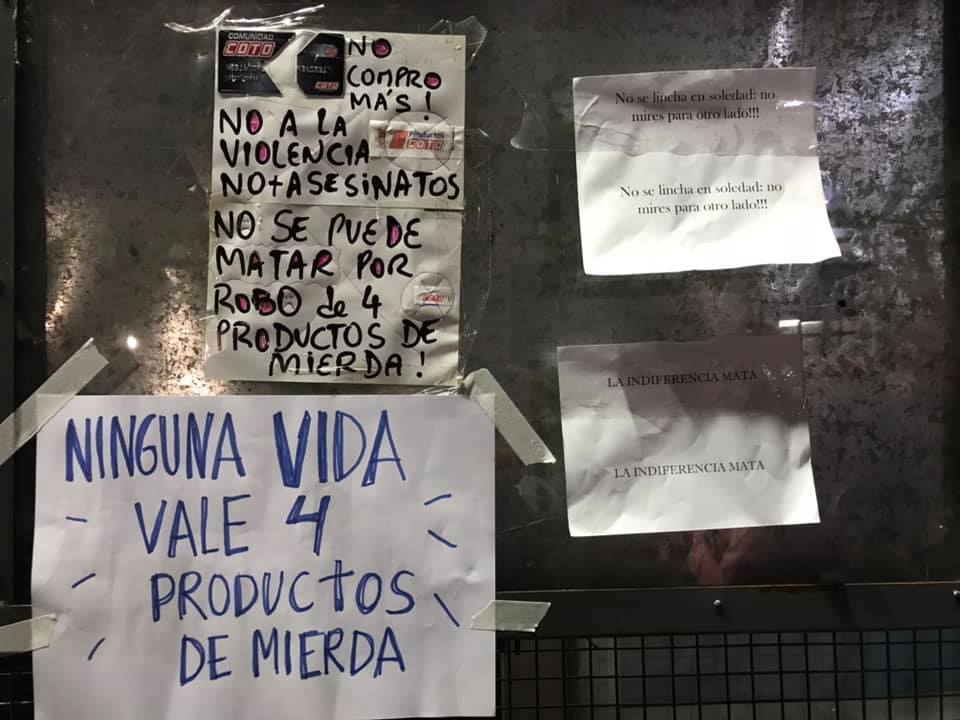 COMUNIDAD
COTO
COTO
NO
COMPRO
MÁS!
NO A LA
VIOLENCIA
Productos
COTO
NO+ASESINATOS
NO SE PUEDE
MATAR POR
ROBO de 4
PRODUCTOS DE
MIERDA!
NINGUNA VIDA
VALE 4
PRODUCTOS
DE MIERDA
No se lincha en soledad: no
mires para otro lado!!!
No se lincha en soledad: no
mires para otro lado!!!
LA INDIFERENCIA MATA
LA INDIFERENCIA MATA